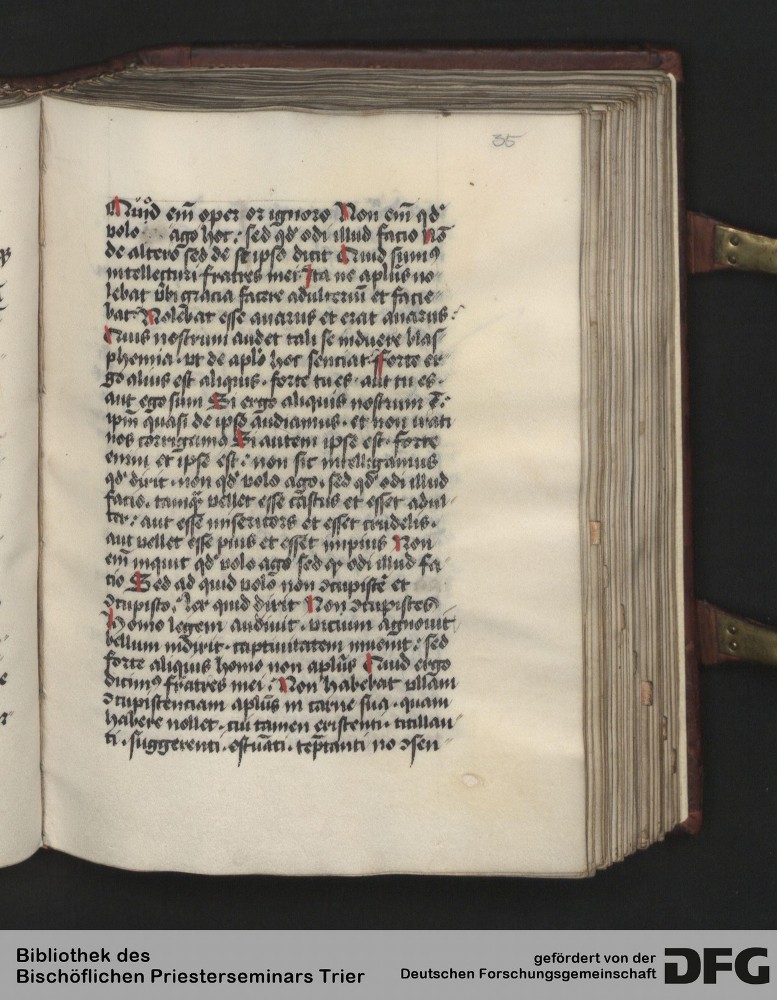 35
Quid em̄ oper or ignoro Non em̄ qd'
volo ago hoc: sed qd' odi illud facio Nō
de altero sed de se ipso dicit Quid sumꝰ
intellecturi fratres mei Ita ne apl̄us no
lebat v̄bi gracia facere adulteriū et facie
bat Nolebat esse auarus et erat auarus:
Quis nostrum audet tali se induere blas
phemia · vt de apl̄o hoc senciat · Forte er
go alius est aliquis · forte tu es · aut tu es ·
aut ego sum Si ergo aliquis nostrum ē:
ip̄m quasi de ipso audiamus · et non irati
nos corrigamꝰ Si autem ipse est · forte
enim et ipse est: non sic intelligamus
qd' dixit · non qd' volo ago · sed qd' odi illud
facio · tamqᷓ vellet esse castus et esset adul
ter: aut esse misericors et esset crudelis ·
aut vellet esse pius et esset impius Non
em̄ inquit qd' volo ago sed qd' odi illud fa
cio Sed ad quid volo non ꝯcupisce et
ꝯcupisco · lex quid dixit Non ꝯcupisces
Homo legem audiuit · vicium agnouit
bellum indixit · captiuitatem inuenit: sed
forte aliquis homo non apl̄us Quid ergo
dicimꝰ fratres mei: Non habebat vllam
ꝯcupiscenciam apl̄us in carne sua · quam
habere nollet · cui tamen existenti · titillan
ti · suggerenti · estuāti · tēptanti nō ꝯsen
Bibliothek des
Bischöflichen Priesterseminars Trier
gefördert von der
Deutschen Forschungsgemeinschaft
DFG